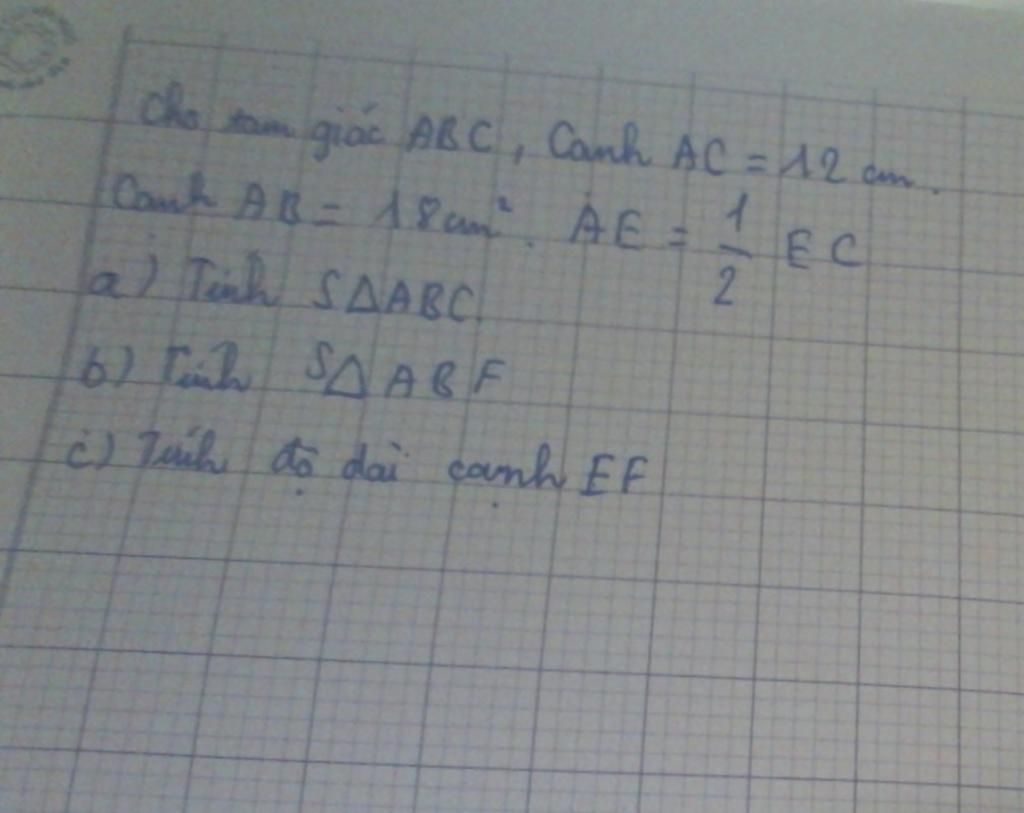 Cho tam giác ABC, Cạnh AC = 12 cm.
Cạnh AB = 18 cm². AE = 1/2 EC
a) Tính SΔABC
b) Tính SΔABF
c) Tính độ dài cạnh EF